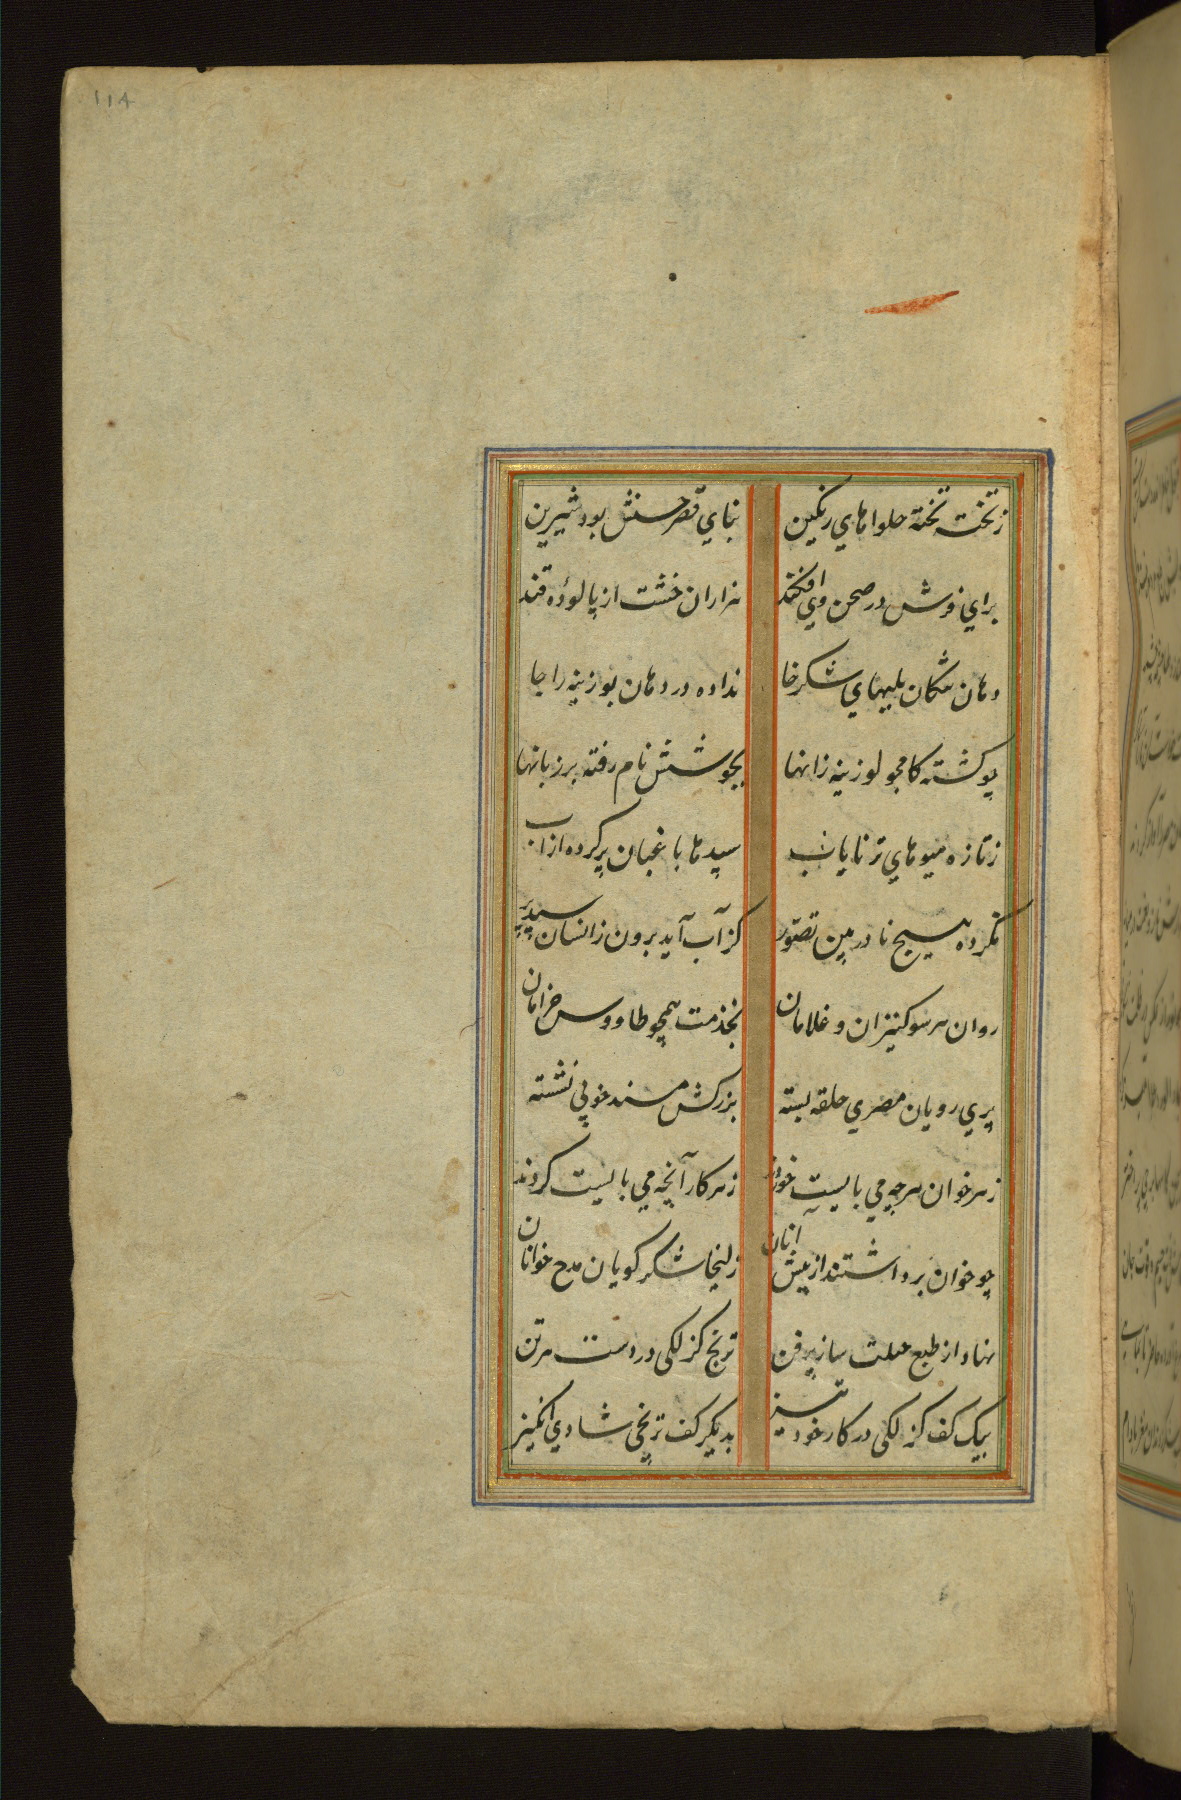 ۱۱۴
ز تخته تخته حلواهای رنگین بنای قصر حسنش بود شیرین
برای فرش در صحن وی افکند هزاران خشت از پالوده قند
دهان تنگان بلبهای شکرخا نداده در دهان بوزینه را جا
چو کشته کامجو لوزینه زانها بجوشش نام رفته بر زبانها
ز تازه میوهای تر نایاب سبدها باغبان پر کرده از آب
نکرده هیچ نادر بین تصور کز آب آید برون زانسان سبد پر
روان هر سو کنیزان و غلامان بخدمت همچو طاووس خرامان
پری رویان مصری حلقه بسته بزرکش مسند خوبی نشسته
ز هر خوان هرچه می بایست خوردند ز هر کار آنچه می بایست کردند
چو خوان برداشتند از پیش آنان زلیخا شکر کویان مدح خوانان
نهاد از طبع حیلت ساز پر فن ترنج کزلکی در دست هر تن
بیک کف کزلکی در کار خود تیز بدیکر کف ترنجی شادی انکیز